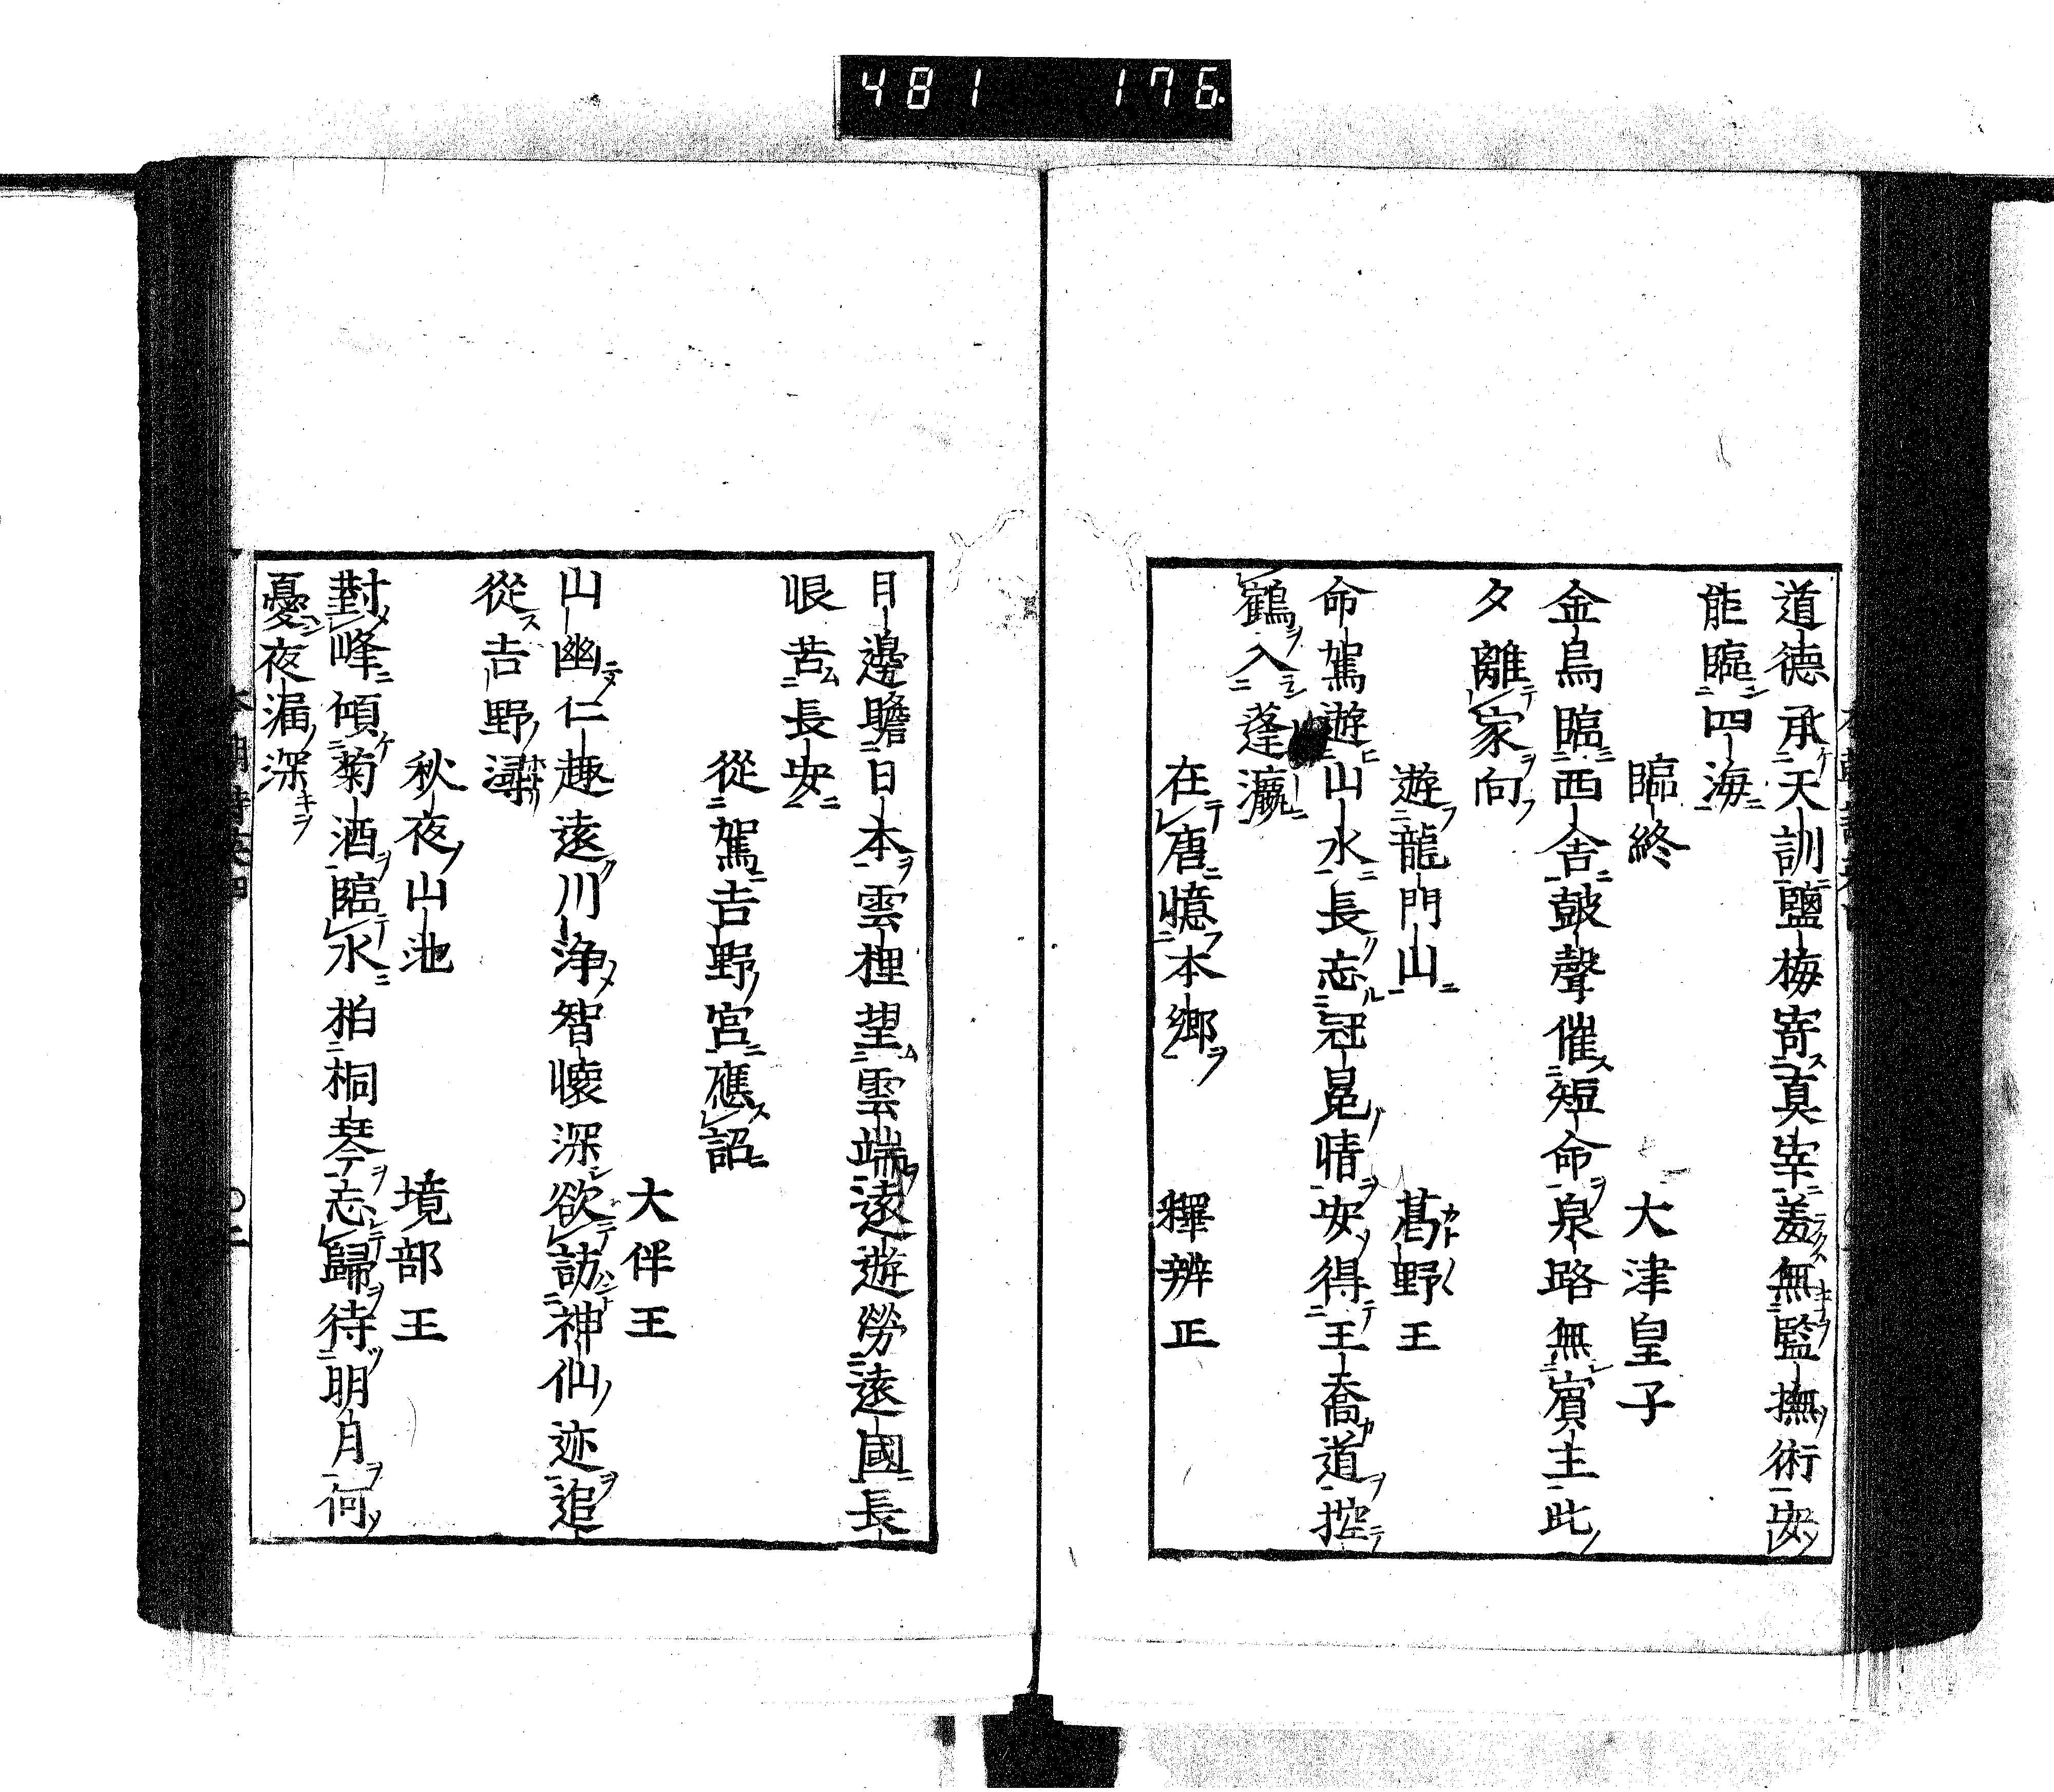 481 176.
道德承天訓鹽梅寄真宰羞無監撫術安
能臨四海
臨終 大津皇子
金烏臨西舎鼓聲催短命泉路無賓主此
夕離家向
遊龍門山 葛野王
命駕遊山水長忘冠冕情安得王喬道控
鶴入蓬瀛
在唐憶本郷 釋辨正
日邊瞻日本雲裡望雲端遠遊勞遠國長
恨苦長安
從駕吉野宮應詔
大伴王
山幽仁趣遠川浄智懐深欲訪神仙迹追
從吉野潯
秋夜山池 境部王
對峰傾菊酒臨水拍桐琴忘歸待明月何
憂夜漏深